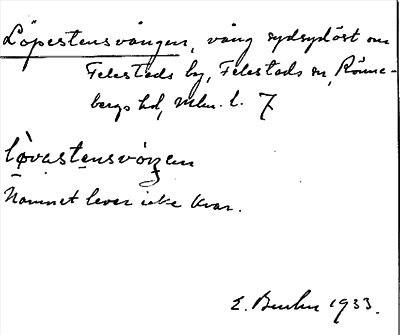 Löpestensvången, vång sydsydöst om
Felestads by, Felestads sn, Rönne-
bergs hd, Mlm. l. 7
lø̀vastensvɔŋen
Namnet lever icke kvar.
E. 1933.